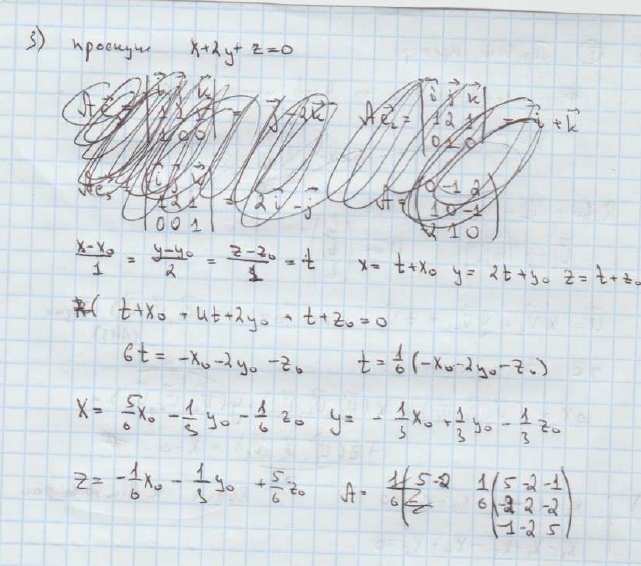 3) проекция x+2y+z=0
x-x₀/1 = y-y₀/2 = z-z₀/1 = t x= t+x₀ y= 2t+y₀ z= t+z₀
t+x₀ + 4t+2y₀ + t+z₀ = 0
6t = -x₀-2y₀-z₀ t= 1/6 (-x₀-2y₀-z₀)
X= 5/6 x₀ - 1/3 y₀ - 1/6 z₀ y= - 1/3 x₀ + 1/3 y₀ - 1/3 z₀
Z= -1/6 x₀ - 1/3 y₀ + 5/6 z₀ A= 1/6 (5 -2 -1
-2 2 -2
-1 -2 5)